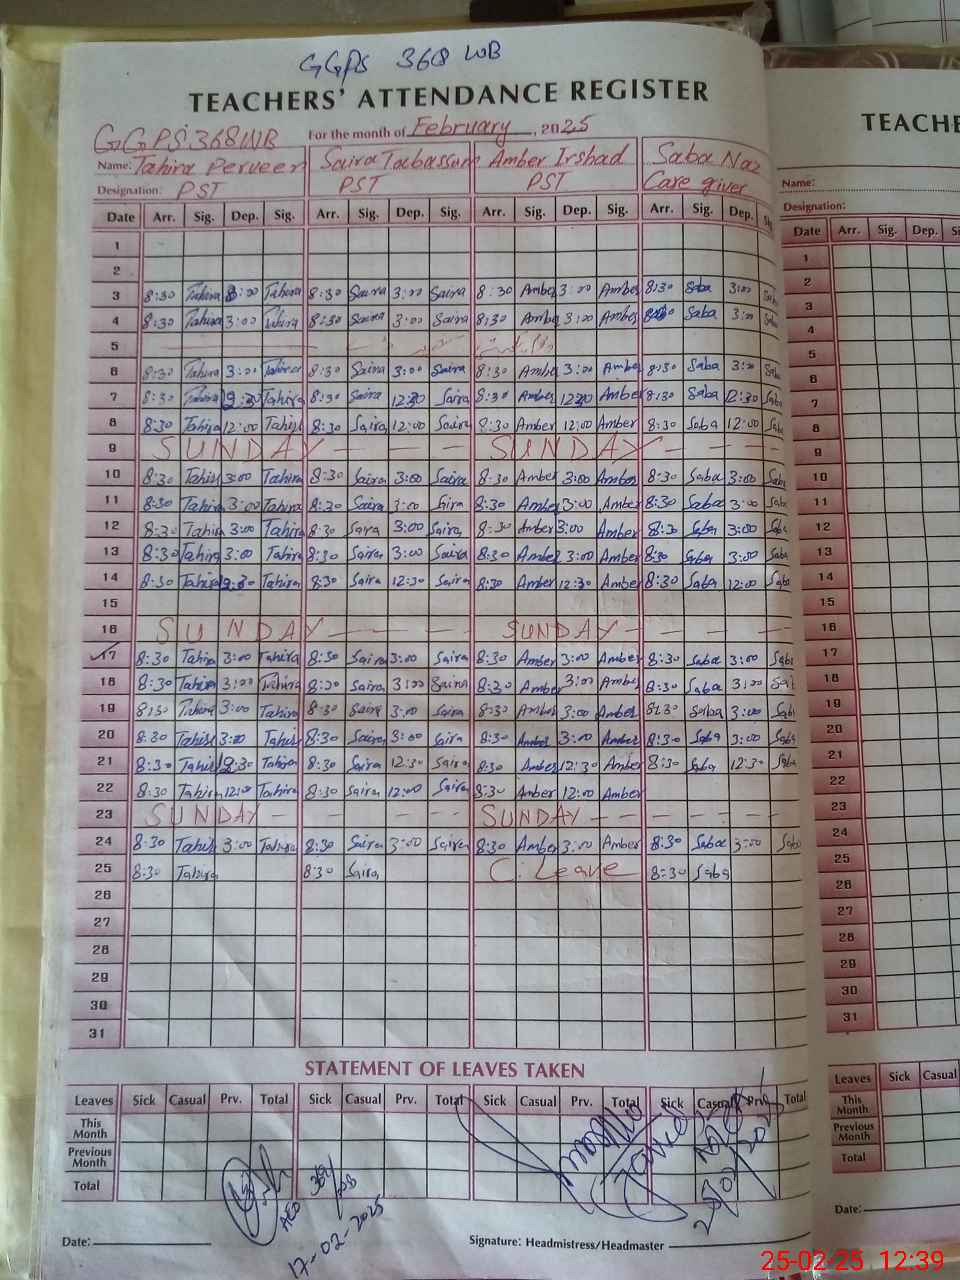 GGPS 368 WB
TEACHERS' ATTENDANCE REGISTER
GGPS 368 WB For the month of February, 2025
Name: Tahira Perveen Saira Tabassum Amber Irshad Saba Naz
Designation: PST PST PST Care giver
Date Arr. Sig. Dep. Sig. Arr. Sig. Dep. Sig. Arr. Sig. Dep. Sig. Arr. Sig. Dep. Sig
1
2
3 8:30 Tahira 3:00 Tahira 8:30 Saira 3:00 Saira 8:30 Amber 3:00 Amber 8:30 Saba 3:00 Saba
4 8:30 Tahira 3:00 Tahira 8:30 Saira 3:00 Saira 8:30 Amber 3:00 Amber 8:30 Saba 3:00 Saba
5
6 8:30 Tahira 3:00 Tahira 8:30 Saira 3:00 Saira 8:30 Amber 3:00 Amber 8:30 Saba 3:00 Saba
7 8:30 Tahira 12:30 Tahira 8:30 Saira 12:30 Saira 8:30 Amber 12:30 Amber 8:30 Saba 12:30 Saba
8 8:30 Tahira 12:00 Tahira 8:30 Saira 12:00 Saira 8:30 Amber 12:00 Amber 8:30 Saba 12:00 Saba
9 SUNDAY - - - - SUNDAY - - - -
10 8:30 Tahira 3:00 Tahira 8:30 Saira 3:00 Saira 8:30 Amber 3:00 Amber 8:30 Saba 3:00 Saba
11 8:30 Tahira 3:00 Tahira 8:30 Saira 3:00 Saira 8:30 Amber 3:00 Amber 8:30 Saba 3:00 Saba
12 8:30 Tahira 3:00 Tahira 8:30 Saira 3:00 Saira 8:30 Amber 3:00 Amber 8:30 Saba 3:00 Saba
13 8:30 Tahira 3:00 Tahira 8:30 Saira 3:00 Saira 8:30 Amber 3:00 Amber 8:30 Saba 3:00 Saba
14 8:30 Tahira 12:30 Tahira 8:30 Saira 12:30 Saira 8:30 Amber 12:30 Amber 8:30 Saba 12:00 Saba
15
16 SUNDAY - - - - SUNDAY - - - -
17 8:30 Tahira 3:00 Tahira 8:30 Saira 3:00 Saira 8:30 Amber 3:00 Amber 8:30 Saba 3:00 Saba
18 8:30 Tahira 3:00 Tahira 8:30 Saira 3:00 Saira 8:30 Amber 3:00 Amber 8:30 Saba 3:00 Saba
19 8:30 Tahira 3:00 Tahira 8:30 Saira 3:00 Saira 8:30 Amber 3:00 Amber 8:30 Saba 3:00 Saba
20 8:30 Tahira 3:00 Tahira 8:30 Saira 3:00 Saira 8:30 Amber 3:00 Amber 8:30 Saba 3:00 Saba
21 8:30 Tahira 12:30 Tahira 8:30 Saira 12:30 Saira 8:30 Amber 12:30 Amber 8:30 Saba 12:30 Saba
22 8:30 Tahira 12:00 Tahira 8:30 Saira 12:00 Saira 8:30 Amber 12:00 Amber
23 SUNDAY - - - - - SUNDAY - - - - -
24 8:30 Tahira 3:00 Tahira 8:30 Saira 3:00 Saira 8:30 Amber 3:00 Amber 8:30 Saba 3:00 Saba
25 8:30 Tahira 8:30 Saira C. Leave 8:30 Saba
26
27
28
29
30
31
STATEMENT OF LEAVES TAKEN
Leaves Sick Casual Prv. Total Sick Casual Prv. Total Sick Casual Prv. Total Sick Casual Prv. Total
This Month
Previous Month
Total
AEO
17-02-2025
Date: Signature: Headmistress/Headmaster
TEACHE
Name:
Designation:
Date Arr. Sig. Dep. S
1
2
3
4
5
6
7
8
9
10
11
12
13
14
15
16
17
18
19
20
21
22
23
24
25
26
27
28
29
30
31
Leaves Sick Casual
This Month
Previous Month
Total
Date:
25-02-25 12:39